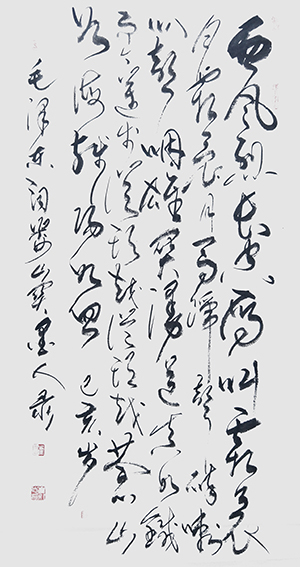 西风烈长空雁叫霜晨
月霜晨月马蹄声碎喇
叭声咽雄关漫道真如铁
而今迈步从头越从头越苍山
如海残阳如血 己亥岁
毛泽东词娄山关墨人录